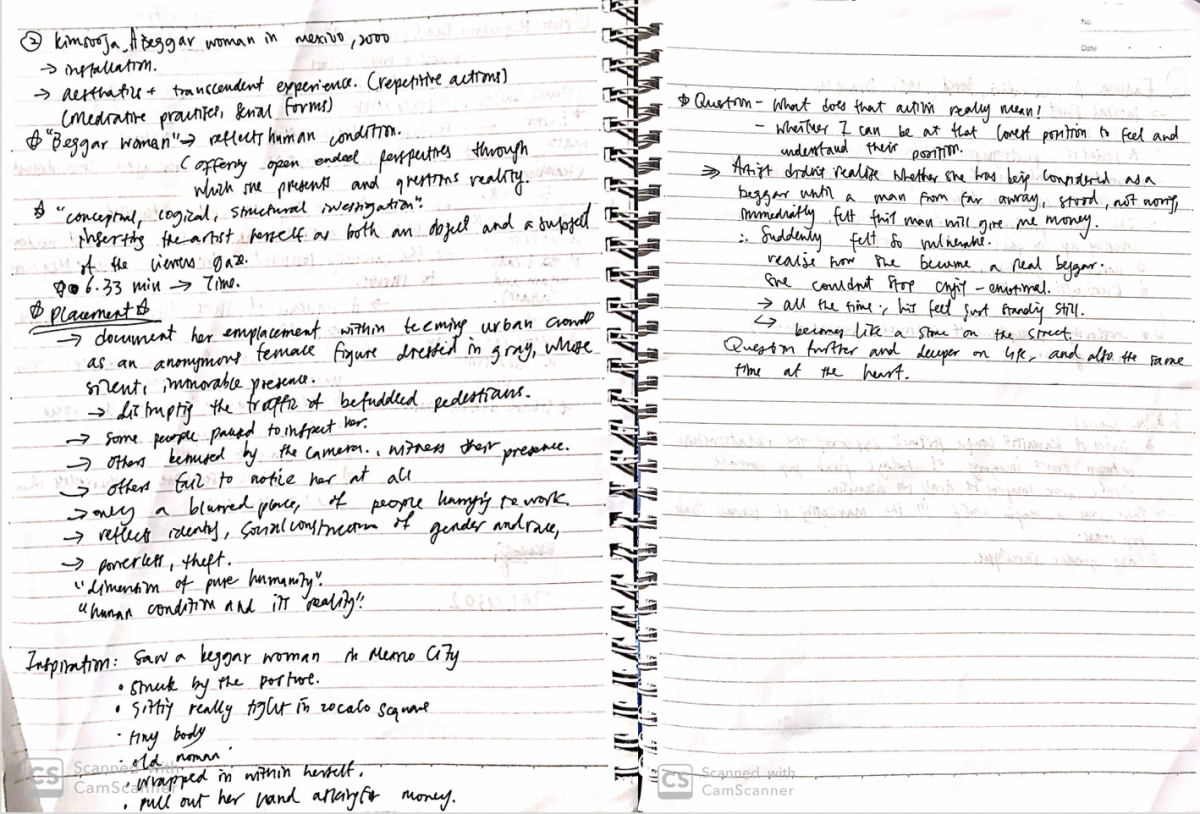 ② Kimsooja, A beggar woman in mexico, 2000
→ installation.
→ aesthetics + transcendent experience. (repetitive actions)
(mediative practices, serial forms)
"Beggar woman" → reflects human condition.
(offering open ended perspectives through
which she presents and questions reality.
"conceptual, logical, structural investigation".
inserting the artist herself as both an object and a subject
of the viewers gaze.
6.33 min → Time.
Placement
→ document her emplacement within teeming urban crowds
as an anonymous female figure dressed in gray, whose
silent, immovable presence.
→ distrupting the traffic of befuddled pedestrians.
→ some people paused to inspect her.
→ others bemused by the camera.. witness their presence.
→ others fail to notice her at all
→ only a blurred place, of people hurrying to work
→ reflect identity, social construction of gender and race,
→ powerless, theft.
"dimension of pure humanity".
"human condition and its reality".
Inspiration: Saw a beggar woman in Mexico City
• struck by the posture.
• sitting really tight in zocalo square
• tiny body
• old woman.
• wrapped in within herself.
• pull out her hand asking for money.
CS Scanned with
CamScanner
No.
Date
Question - What does that action really mean!
- whether I can be at that lowest position to feel and
understand their position.
⇒ Artist didn't realise whether she has being considered as a
beggar until a man from far away, stood, not moving,
immediatly felt this man will give me money.
∴ Suddenly felt so vulnerable.
realise how she became a real beggar.
She couldn't stop crying - emotional.
→ all the time, his feel just standing still.
↳ becomes like a stone on the street.
Question further and deeper on life, and also the same
time at the heart.
CS Scanned with
CamScanner